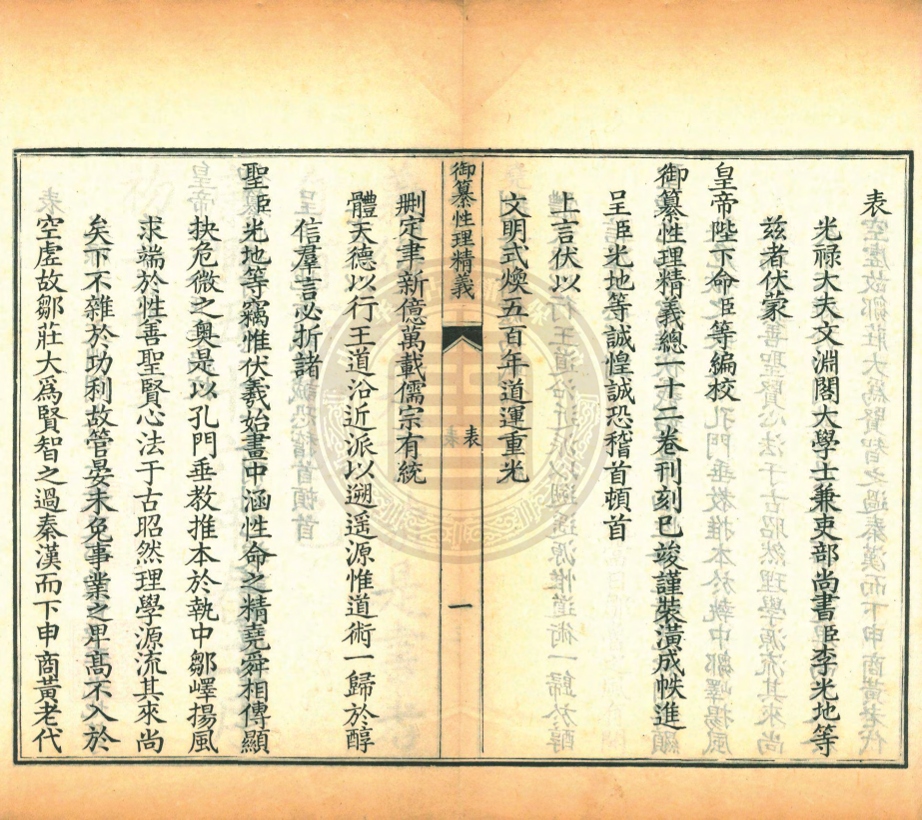 表
光祿大夫文淵閣大學士兼吏部尚書臣李光地等
茲者伏蒙
皇帝陛下命臣等編校
御纂性理精義總一十二卷刊刻已竣謹裝潢成帙進
呈臣光地等誠惶誠恐稽首頓首
上言伏以
文明式煥五百年道運重光
御纂性理精義
表
一
刪定聿新億萬載儒宗有統
體天德以行王道沿近派以遡遥源惟道術一歸於醇
信羣言必折諸
聖臣光地等竊惟伏羲始畫中涵性命之精堯舜相傳顯
抉危微之奧是以孔門垂教推本於執中鄒嶧揚風
求端於性善聖賢心法于古昭然理學源流其來尚
矣下不雜於功利故管晏未免事業之卑髙不入於
空虛故鄒莊大爲賢智之過秦漢而下申商黃老代